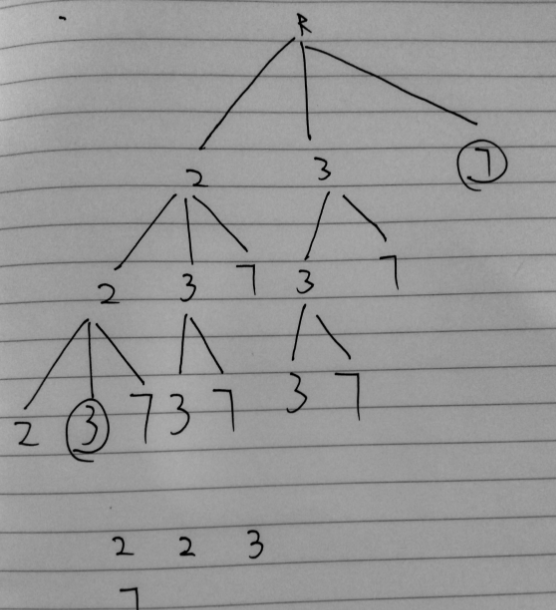 R
2 3 7
2 3 7 3 7
2 3 7 3 7 3 7
2 2 3
7